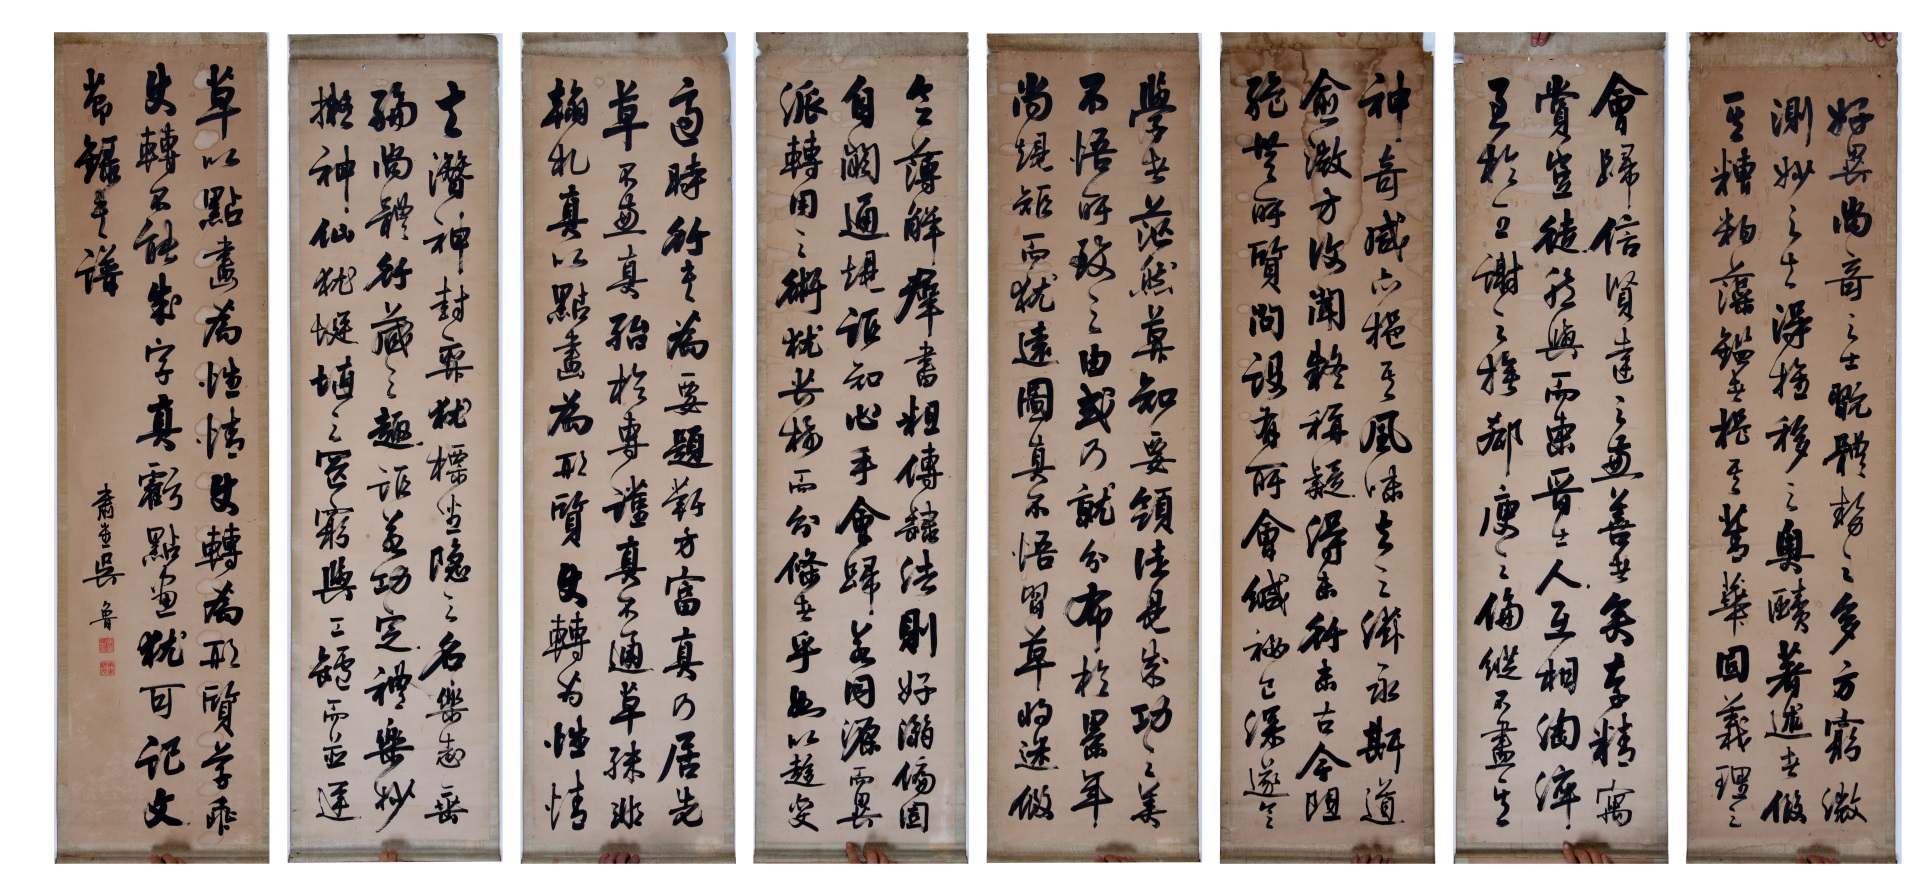 好異尚奇之士翫體勢之多方窮微
測妙之士得推移之奧賾著述者假
其糟粕藻鑑者挹其菁華固義理之
會歸信賢達之兼善者矣存精寓
賞豈徒然與而東晉士人互相陶淬
至於王謝之族郗庾之倫縱不盡其
神奇咸亦挹其風味去之滋永斯道
愈微方復聞疑稱疑得末行末古今阻
絕無所質問設有所會緘秘已深遂令
學者茫然莫知要領徒見成功之美
不悟所致之由或乃就分布於累年
尚規矩而猶遠圖真不悟習草將迷假
令薄解群書粗傳隸法則好溺偏固
自閡通規詎知心手會歸若同源而異
派轉用之術猶共樹而分條者乎加以趨變
適時行書為要題勒方富真乃居先
草不兼真殆於專謹真不通草殊非
翰札真以點畫為形質使轉為性情
士潛神對弈猶標坐隱之名樂志垂
綸尚體行藏之趣詎若功定禮樂妙
擬神仙猶埏埴之罔窮與工鑪而並運
草以點畫為性情使轉為形質草乖
使轉不能成字真虧點畫猶可記文
節錄書譜
肅堂吳魯